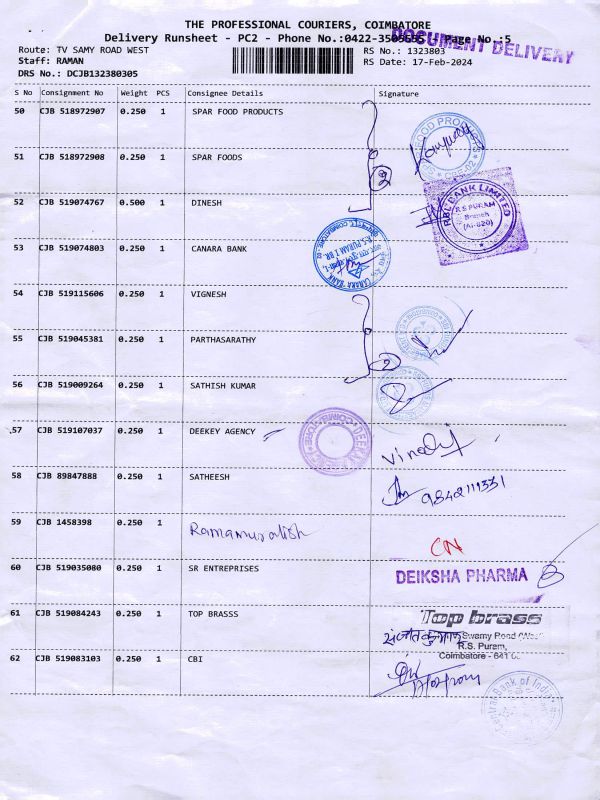 THE PROFESSIONAL COURIERS, COIMBATORE
Delivery Runsheet - PC2 - Phone No.:0422-3505555 - Page No.:5
DOCUMENT DELIVERY
Route: TV SAMY ROAD WEST
RS No.: 1323803
Staff: RAMAN
RS Date: 17-Feb-2024
DRS No.: DCJB132380305
S No Consignment No Weight PCS Consignee Details Signature
50 CJB 518972907 0.250 1 SPAR FOOD PRODUCTS
51 CJB 518972908 0.250 1 SPAR FOODS
2
52 CJB 519074767 0.500 1 DINESH
RBL BANK LIMITED
R S PURAM
Branch
(AI-820)
53 CJB 519074803 0.250 1 CANARA BANK
54 CJB 519115606 0.250 1 VIGNESH
55 CJB 519045381 0.250 1 PARTHASARATHY
2
56 CJB 519009264 0.250 1 SATHISH KUMAR
57 CJB 519107037 0.250 1 DEEKEY AGENCY
58 CJB 89847888 0.250 1 SATHEESH
9842111331
59 CJB 1458398 0.250 1
CN
60 CJB 519035080 0.250 1 SR ENTREPRISES
DEIKSHA PHARMA
61 CJB 519084243 0.250 1 TOP BRASSS
Top brass
Swamy Road (West
R.S. Puram,
Coimbatore - 641 0
62 CJB 519083103 0.250 1 CBI
Central Bank of India